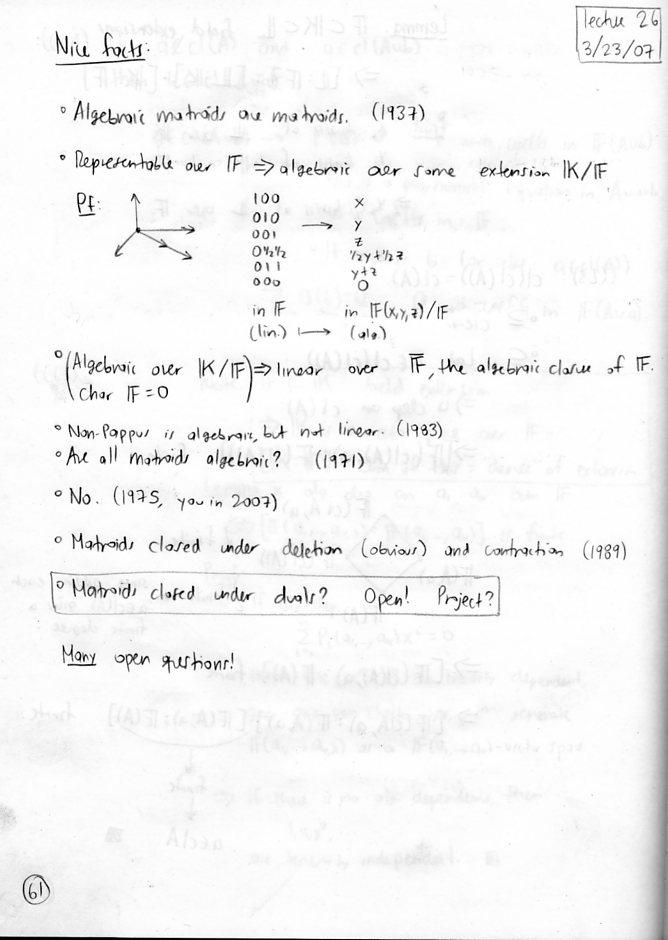 lecture 26
3/23/07
Nice facts:
° Algebraic matroids are matroids. (1937)
° Representable over 𝔽 ⇒ algebraic over some extension 𝕂/𝔽
Pf:
100 x
010 → y
001 z
0½½ ½y+½z
011 y+z
000 0
in 𝔽 in 𝔽(x,y,z)/𝔽
(lin.) ⟼ (alg.)
° (Algebraic over 𝕂/𝔽) ⇒ linear over 𝔽̅, the algebraic closure of 𝔽.
char 𝔽=0
° Non-Pappus is algebraic, but not linear. (1983)
° Are all matroids algebraic? (1971)
° No. (1975, you in 2007)
° Matroids closed under deletion (obvious) and contraction (1989)
° Matroids closed under duals? Open! Project?
Many open questions!
61